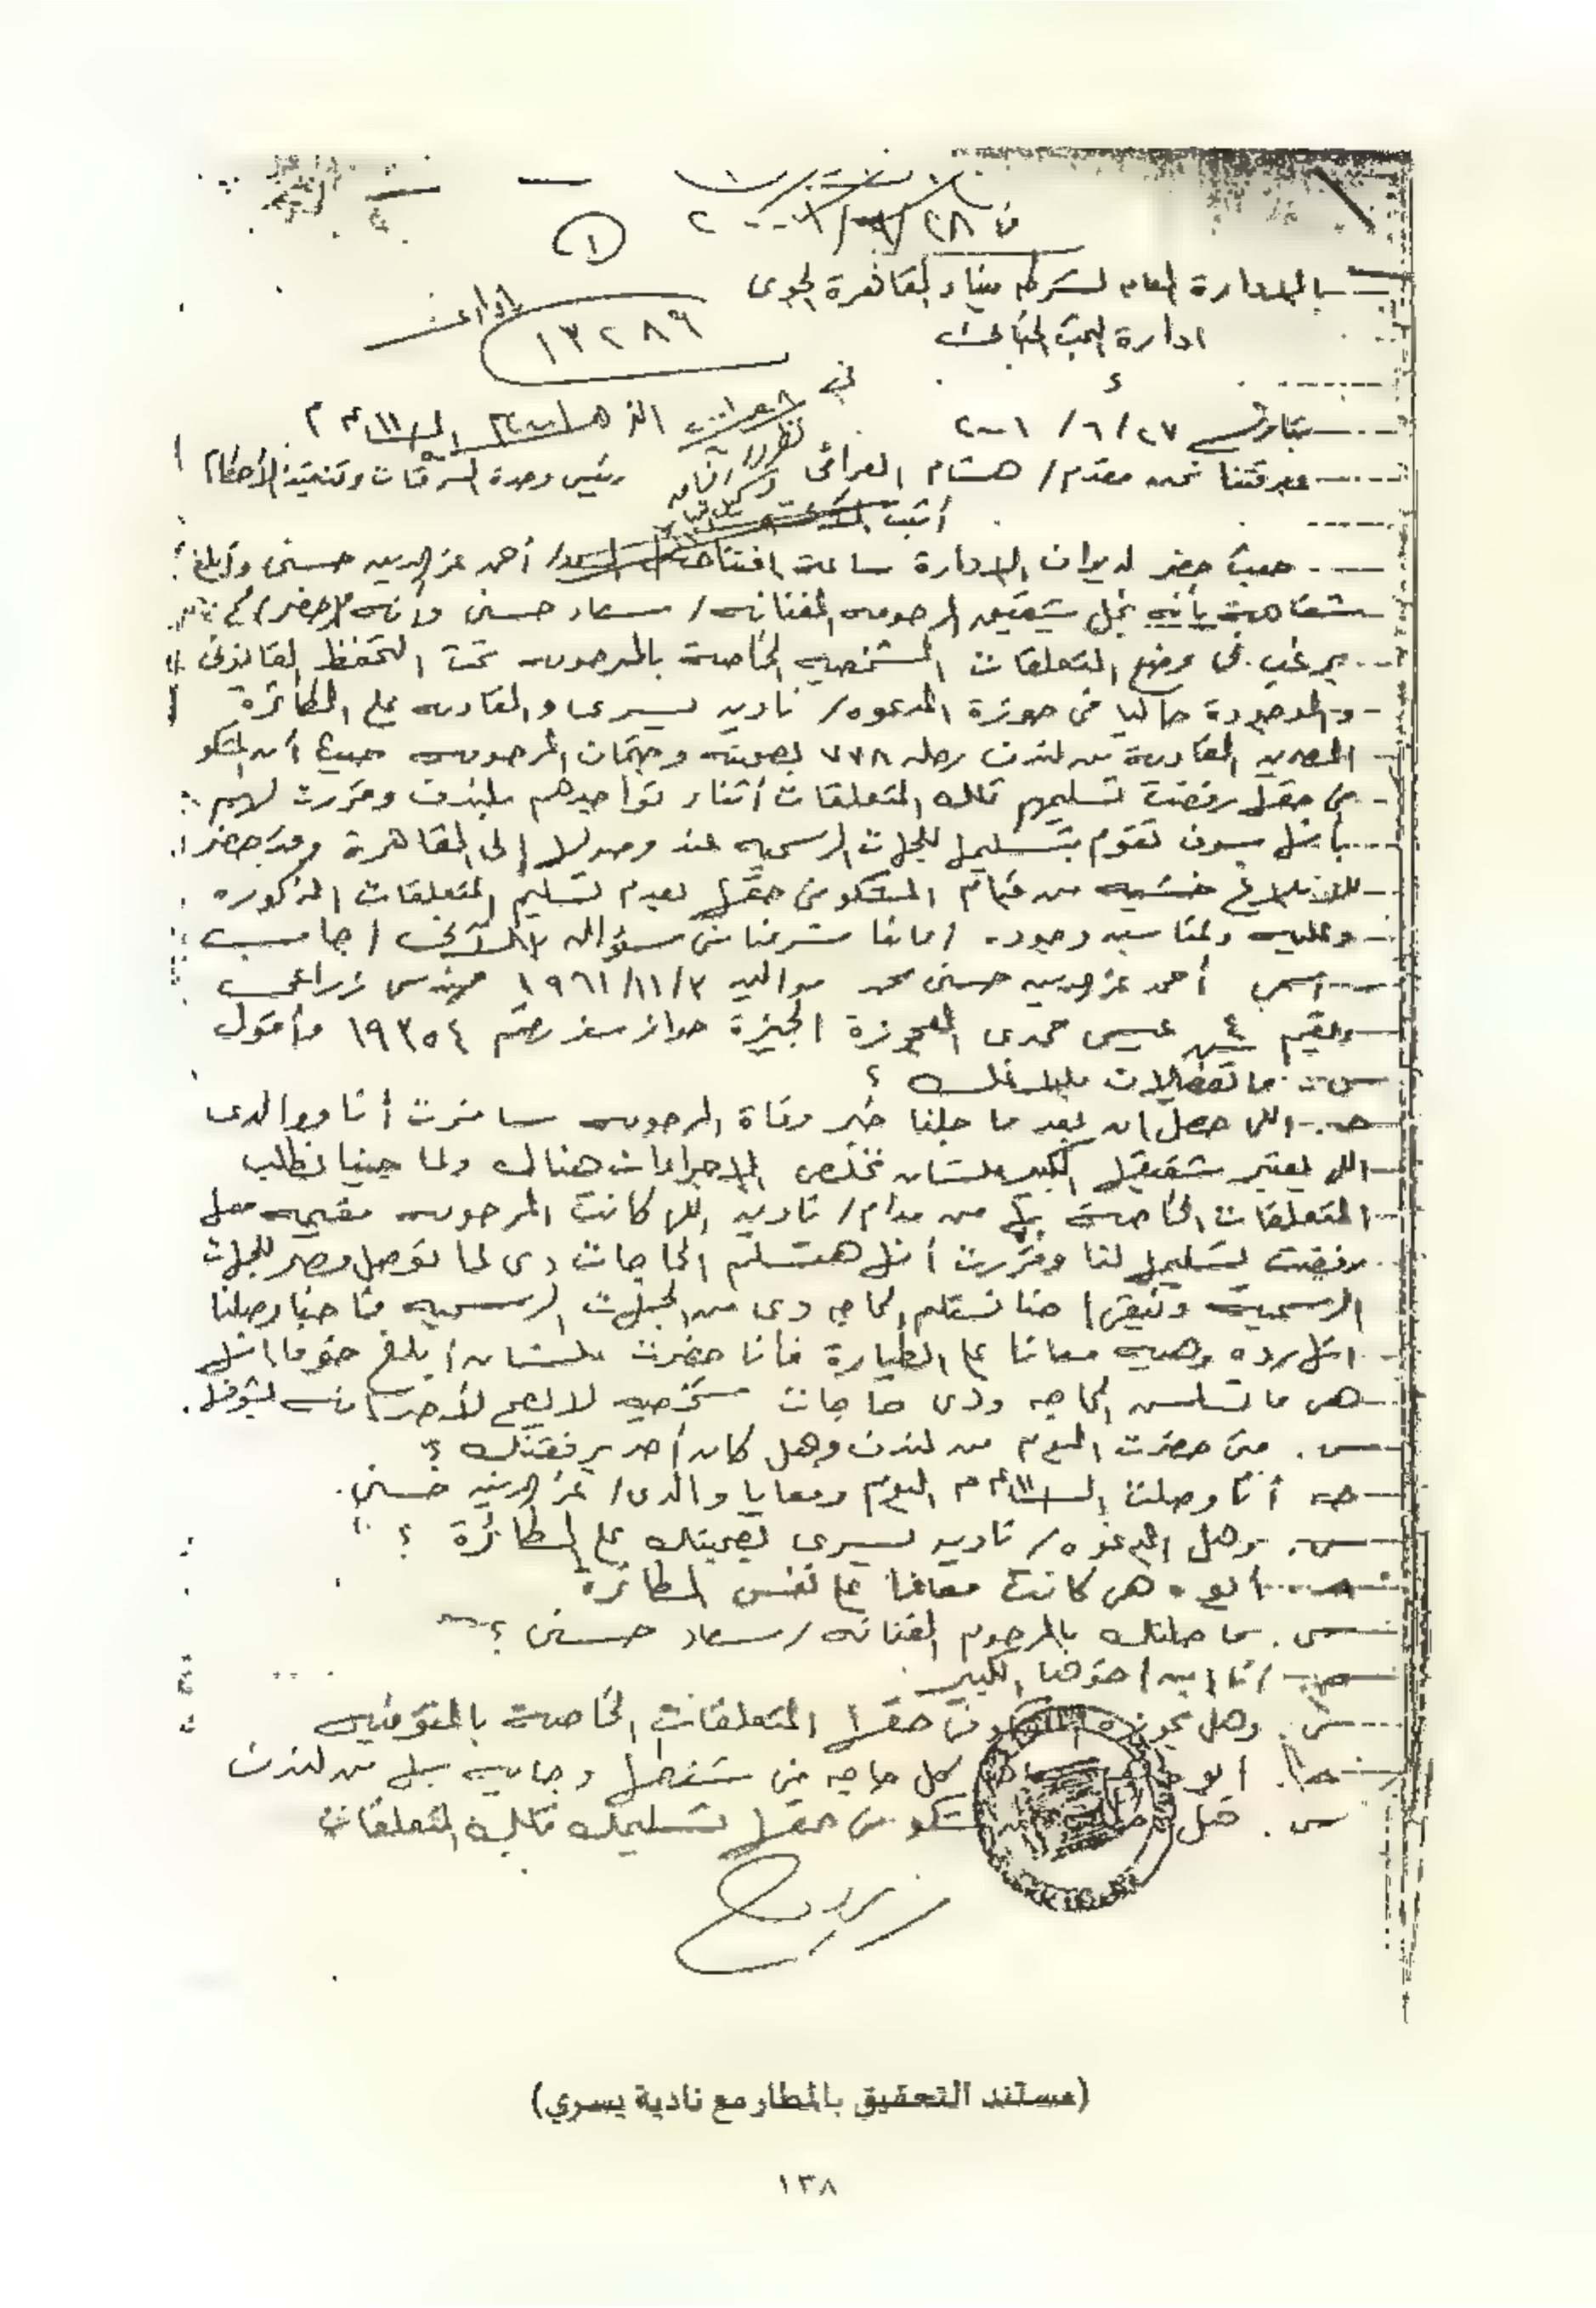 ١
بالإدارة العامه لشرطه ميناء القاهرة الجوى
١٣٢٨٩
ادارة البحث الجنائى
بتاريخ ٢٧ / ٦ / ٢٠٠١
بمعرفتنا نحن مقدم / هشام العراقى رئيس وحدة السرقات وتنفيذ الأحكام
أثبت
حيث حضر لديوان الإدارة ساعة افتتاح أحمد عز الدين حسنى وأبلغ
شفاهة بأنه نجل شقيق المرحومه الفنانه / سعاد حسنى وأنه
يرغب فى وضع المتعلقات الشخصيه الخاصة بالمرحومه تحت التحفظ القانونى
والموجودة حاليا فى حوزة المدعوه / ناديه يسرى والقادمه على الطائرة
المصريه القادمة من لندن رحله ٧٧٨ بصحبته وجثمان المرحومه حيث أن المشكو
فى حقها رفضت تسليمهم تلك المتعلقات أثناء تواجدهم بلندن وقررت لهم
بأنها سوف تقوم بتسليمها للجهات الرسميه عند وصولها إلى القاهرة وقد حضر
للإبلاغ خشيه من قيام المشكو فى حقها بعدم تسليم المتعلقات المذكوره
وعليه وبمناسبه وجوده امامنا شرعنا فى سؤاله بالآتى اجاب
اسمى أحمد عز الدين حسنى محمد مواليد ١٩٦١/١١/٣ مهندس زراعى
ومقيم ٤ ش عيسى حمدى العجوزة الجيزة جواز سفر رقم ١٩٣٥٤ وأقول
س. ما تفصيلات بلاغك ؟
جـ. اللى حصل ان بعد ما جلنا خبر وفاة المرحومه سافرت أنا ووالدى
اللى يعتبر شقيقها الكبير علشان نخلص الإجراءات هناك ولما جينا نطلب
المتعلقات الخاصة بها من مدام / ناديه اللى كانت المرحومه مقيمه معها
رفضت تسليمها لنا وقررت أنها هتسلم الحاجات دى لما توصل مصر للجهات
الرسمية ونبقى احنا نستلم الحاجه دى من الجهات الرسميه فاحنا وصلنا
النهارده وهيه معانا على الطيارة فأنا حضرت علشان ابلغ خوفا انها
هى ما تسلمش الحاجه ودى حاجات شخصيه لا يصح لأحد انه يشوفها.
س. متى حضرت اليوم من لندن وهل كان أحد برفقتك ؟
جـ أنا وصلت اليوم ومعايا والدى / عز الدين حسنى.
س. وهل المدعوه / ناديه يسرى بصحبتك على الطائرة ؟
جـ. أيوه هى كانت معانا على نفس الطائرة
س. ما صلتك بالمرحومه الفنانه / سعاد حسنى ؟
جـ. أنا ابن اخوها الكبير
س. وهل بحوزة المشكو فى حقها المتعلقات الخاصة بالمتوفيه
جـ. أيوه كل حاجه فى شنطها وجايه بيها من لندن
س. هل المشكو فى حقها تسليمك تلك المتعلقات
(مستند التحقيق بالمطار مع نادية يسري)
١٣٨